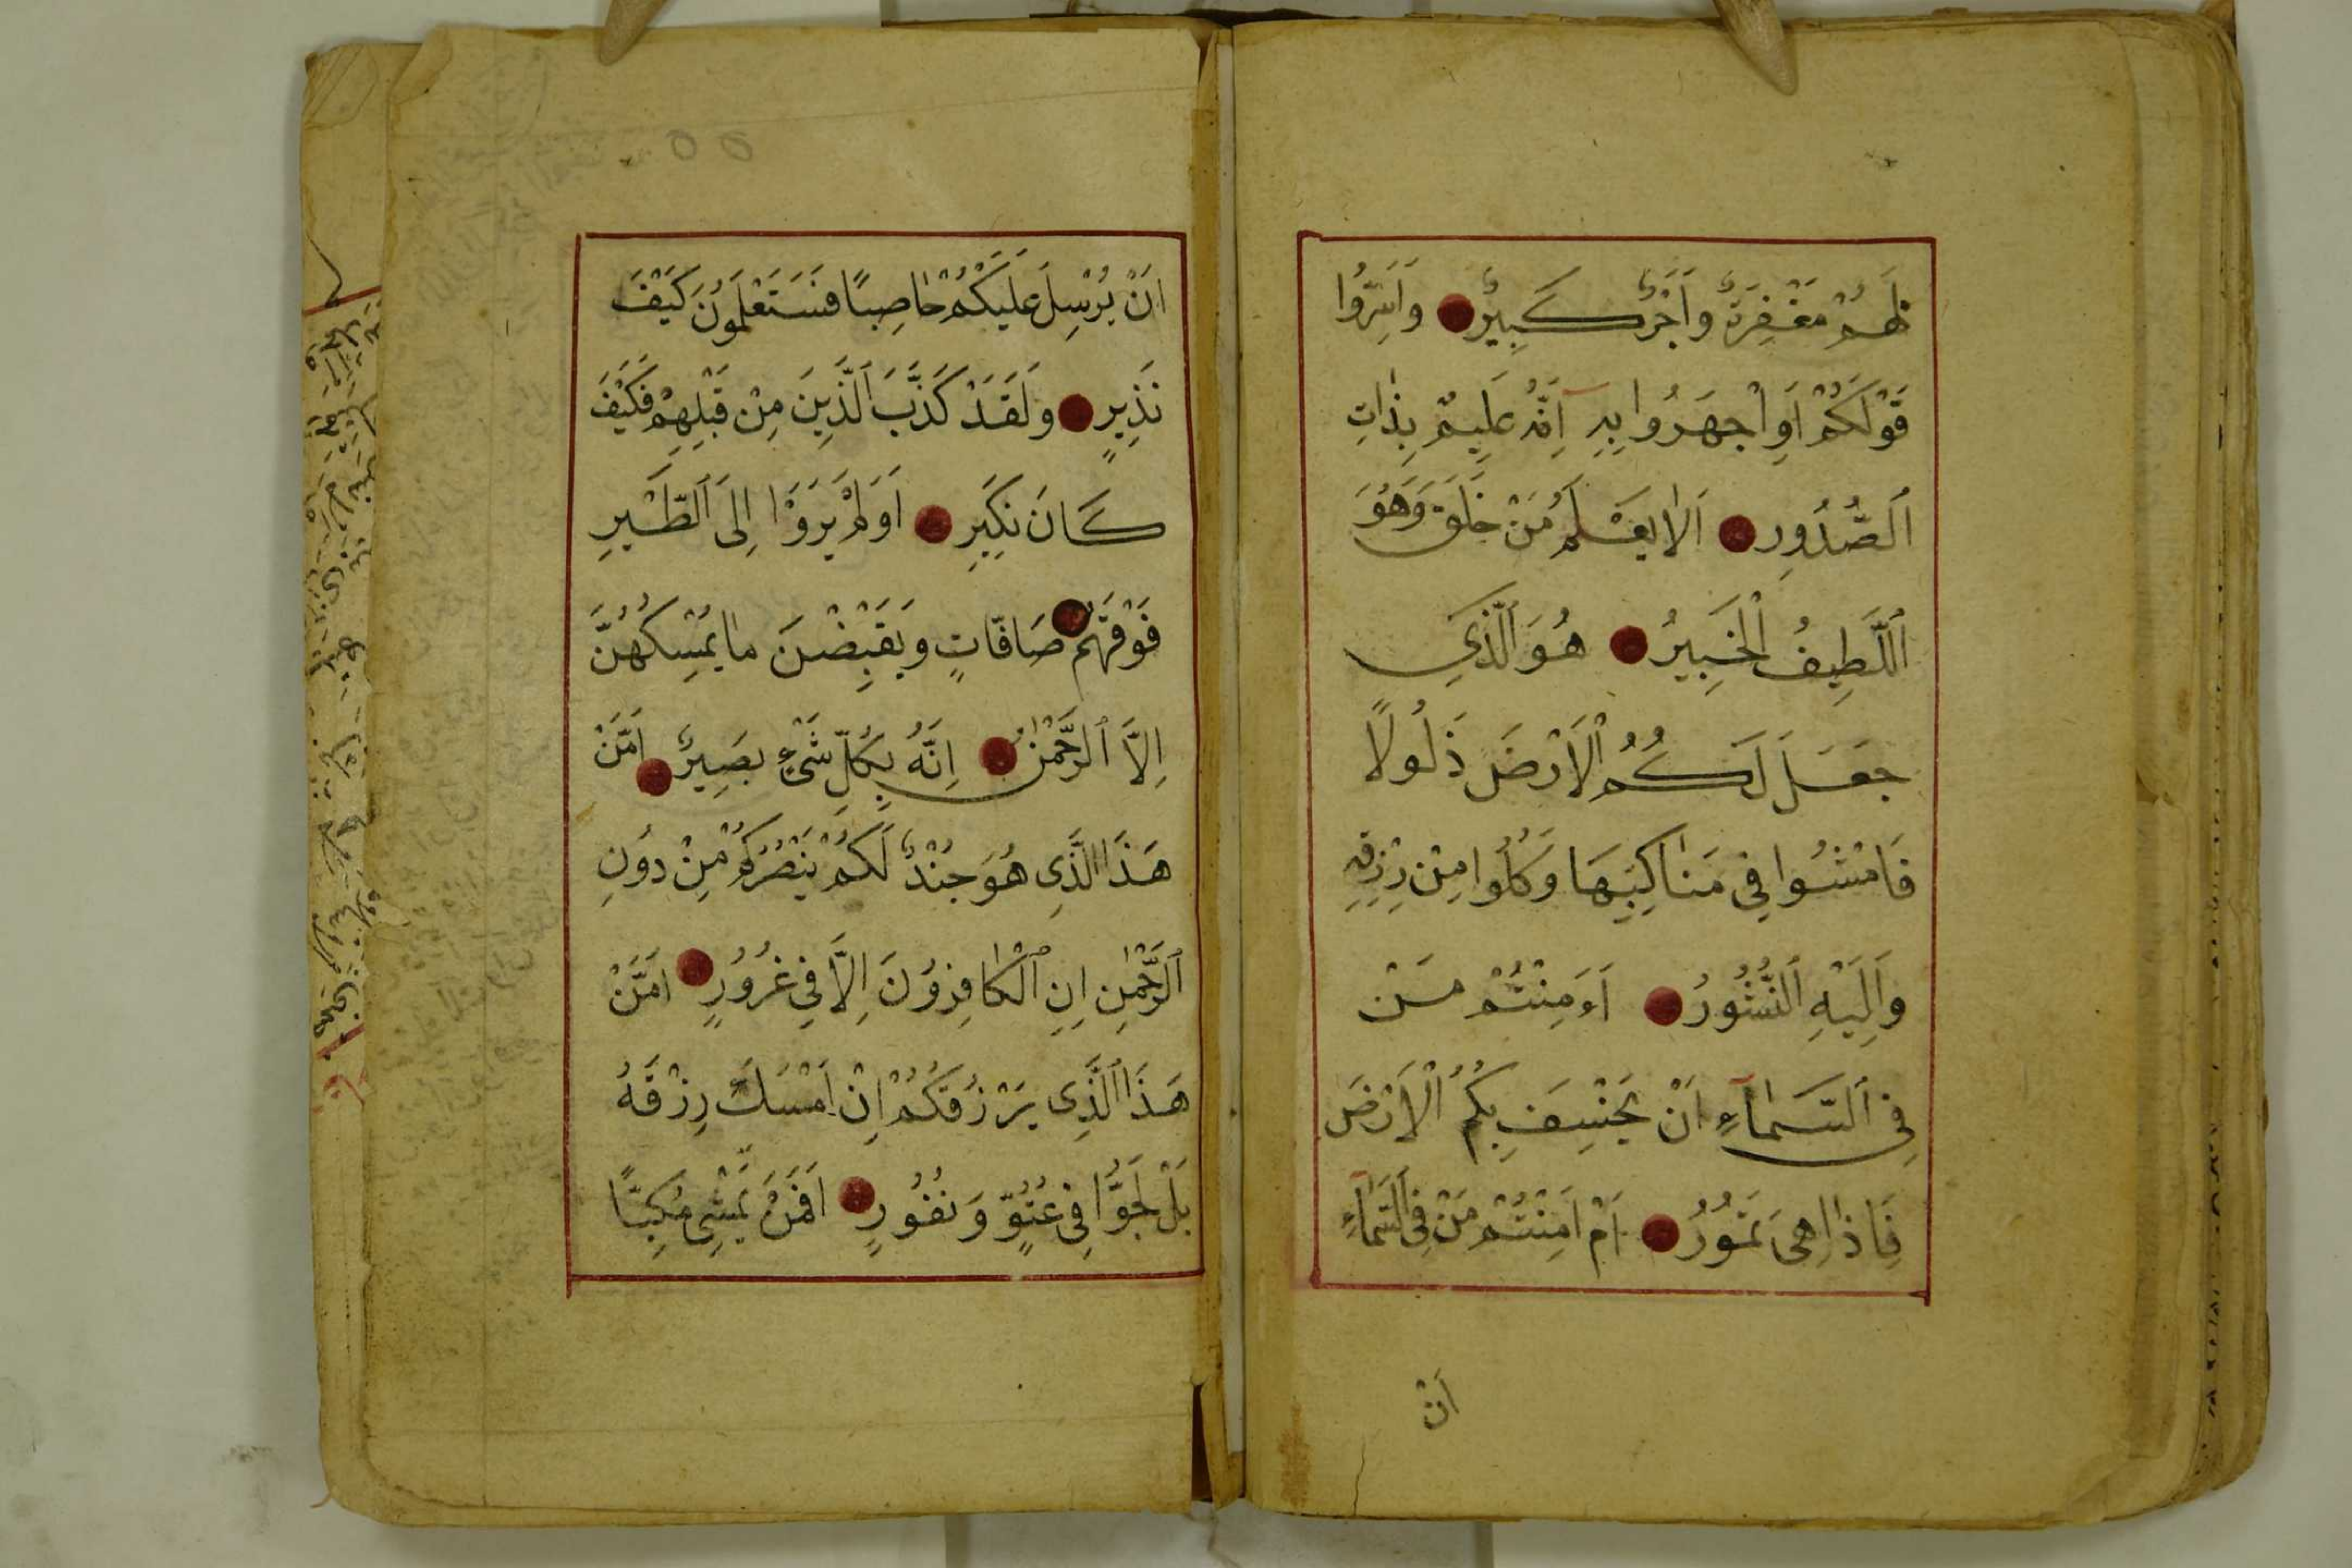 لَهُمْ مَغْفِرَةٌ وَاَجْرٌ كَبِيْرٌ وَاَسِرُّوا
قَوْلَكُمْ اَوِ اجْهَرُوا بِهِ اِنَّهُ عَلِيمٌ بِذَاتِ
ٱلصُّدُورِ اَلَا يَعْلَمُ مَنْ خَلَقَ وَهُوَ
ٱللَّطِيفُ ٱلْخَبِيرُ هُوَ ٱلَّذِي
جَعَلَ لَكُمُ ٱلْاَرْضَ ذَلُولًا
فَامْشُوا فِي مَنَاكِبِهَا وَكُلُوا مِنْ رِزْقِهِ
وَاِلَيْهِ ٱلنُّشُورُ اَءَمِنْتُمْ مَنْ
فِي ٱلسَّمَآءِ اَنْ يَخْسِفَ بِكُمُ ٱلْاَرْضَ
فَاِذَا هِيَ تَمُورُ اَمْ اَمِنْتُمْ مَنْ فِي ٱلسَّمَآءِ
اَنْ
اَنْ يُرْسِلَ عَلَيْكُمْ حَاصِبًا فَسَتَعْلَمُونَ كَيْفَ
نَذِيرِ وَلَقَدْ كَذَّبَ ٱلَّذِينَ مِنْ قَبْلِهِمْ فَكَيْفَ
كَانَ نَكِيرِ اَوَلَمْ يَرَوْا اِلَى ٱلطَّيْرِ
فَوْقَهُمْ صَافَّاتٍ وَيَقْبِضْنَ مَا يُمْسِكُهُنَّ
اِلَّا ٱلرَّحْمٰنُ اِنَّهُ بِكُلِّ شَيْءٍ بَصِيرٌ اَمَّنْ
هَذَا ٱلَّذِي هُوَ جُنْدٌ لَكُمْ يَنْصُرُكُمْ مِنْ دُونِ
ٱلرَّحْمٰنِ اِنِ ٱلْكَافِرُونَ اِلَّا فِي غُرُورٍ اَمَّنْ
هَذَا ٱلَّذِي يَرْزُقُكُمْ اِنْ اَمْسَكَ رِزْقَهُ
بَلْ لَجُّوا فِي عُتُوٍّ وَنُفُورٍ اَفَمَنْ يَمْشِي مُكِبًّا